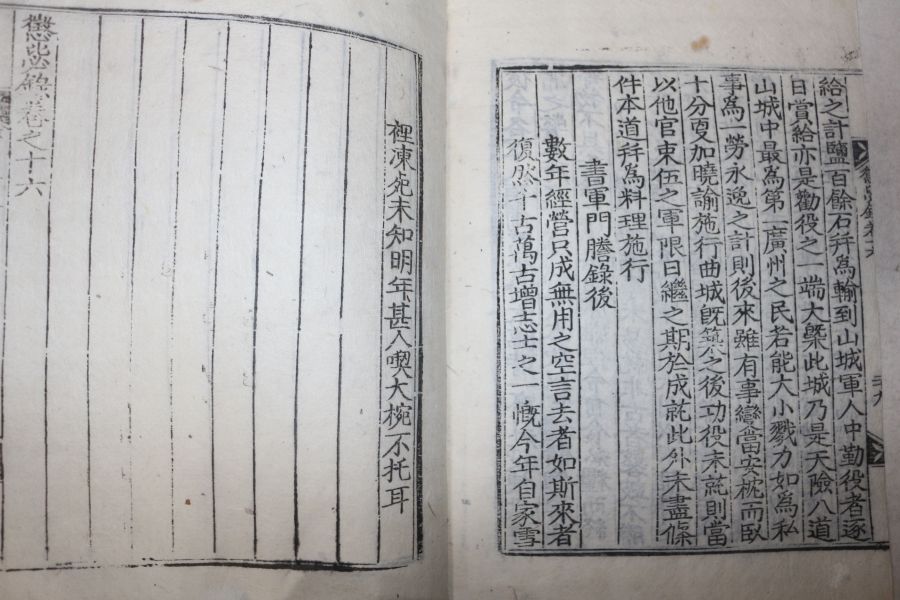 給之計鹽百餘石幷為輸到山城軍人中勤役者逐
日賞給亦是勸役之一端大槩此城乃是天險八道
山城中最為第一廣州之民若能大小戮力如為私
事為一勞永逸之計則後來雖有事變當安枕而臥
十分更加曉諭施行曲城旣築之後功役未就則當
以他官束伍之軍限日繼之期於成就此外未盡條
件本道幷為料理施行
書軍門謄錄後
數年經營只成無用之空言去者如斯來者
復然千古萬古增志士之一慨今年自家雪
裡凍死未知明年甚人喫大椀不托耳
懲毖錄卷之十六